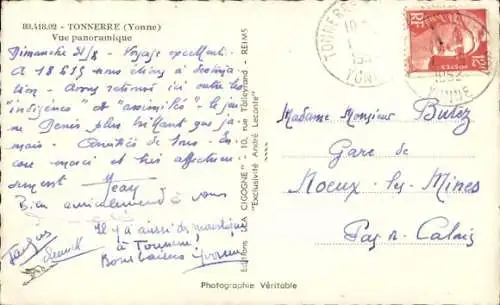 80.418.02 - TONNERRE (Yonne)
Vue panoramique
Dimanche 31/8 - Voyage excellent.
A 18h15 nous étions à destina
tion - Avons retrouvé ici outre les
"indigènes" et "assimilés" - le jeu
ne Denis plus brillant que ja-
mais - Amitiés de tous - En
core merci et très affectueu
sement Jean
Bien amicalement à vous
Il y a aussi des moustiques
à Tonnerre!
Bons baisers Yvonne
Jacques
Editions "LA CIGOGNE" - 10, rue Talleyrand - REIMS
"Exclusivité André Leconte"
TONNERRE
YONNE
RF
POSTES
1952
YONNE
Madame, Monsieur Butez
Gare de
Noeux-les-Mines
Pas-de-Calais
Photographie Véritable